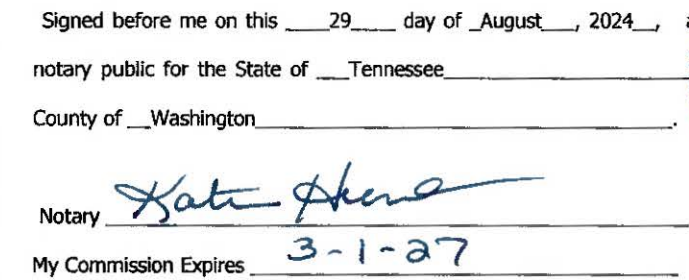 Signed before me on this ____29____ day of _August___, 2024__, a
notary public for the State of ___Tennessee____________________
County of __Washington____________________.
Notary
My Commission Expires 3-1-27